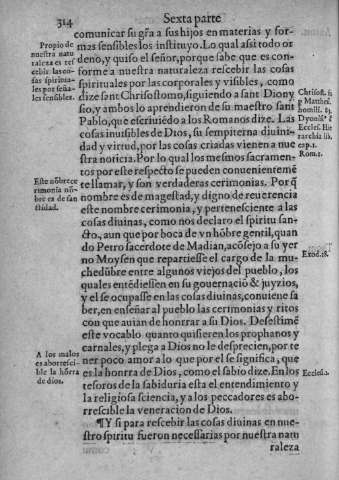 314
Sexta parte
comunicar su gr̃a a sus hijos en materias y for-
mas sensibles los instituyo. Lo qual assi todo or
deno, y quiso el señor, porque sabe que es con-
forme a nuestra naturaleza rescebir las cosas
spirituales por las corporales y visibles, como
dize sant Chrisostomo, siguiendo a sant Diony
sio, y ambos lo aprendieron de su maestro sant
Pablo, que escriuiẽdo a los Romanos dize. Las
cosas inuisibles de Dios, su sempiterna diuini-
dad y virtud, por las cosas criadas vienen a nue
stra noticia. Por lo qual los mesmos sacramen-
tos por este respecto se pueden conuenientemẽ
te llamar, y son verdaderas cerimonias. Por q̃
nombre es de magestad, y digno de reuerencia
este nombre cerimonia, y pertenesciente a las
cosas diuinas, como nos declaro el spiritu san-
cto, aun que por boca de vn hõbre gentil, quan
do Petro sacerdote de Madian, acõsejo a su yer
no Moysen que repartiesse el cargo de la mu-
chedũbre entre algunos viejos del pueblo, los
quales entẽdiessen en su gouernaciõ & juyzios,
y el se ocupasse en las cosas diuinas, conuiene sa
ber, en enseñar al pueblo las cerimonias y ritos
con que auian de honrrar a su Dios. Desestimẽ
este vocablo quanto quisieren los prophanos y
carnales, y plega a Dios no le desprecien, por te
ner poco amor a lo que por el se significa, que
es la honrra de Dios, como el sabio dize. En los
tesoros de la sabiduria esta el entendimiento y
la religiosa sciencia, y a los peccadores es abo-
rrescible la veneracion de Dios.
¶Y si para rescebir las cosas diuinas en nue-
stro spiritu fueron necessarias por nuestra natu
raleza
Propio de
nuestra natu
raleza es res
cebir las co-
sas spiritua-
les por seña-
les sensibles.
Este nõbre ce
rimonia nõ-
bre es de san
ctidad.
A los malos
es aborresci-
ble la hõrra
de dios.
Chrisost. su
p Matthei.
homili.
Dyonisᵒ
Eccles. Hie
rarchia lib.
cap. 1.
Rom. 1.
Exod. 18.
Ecclesia.